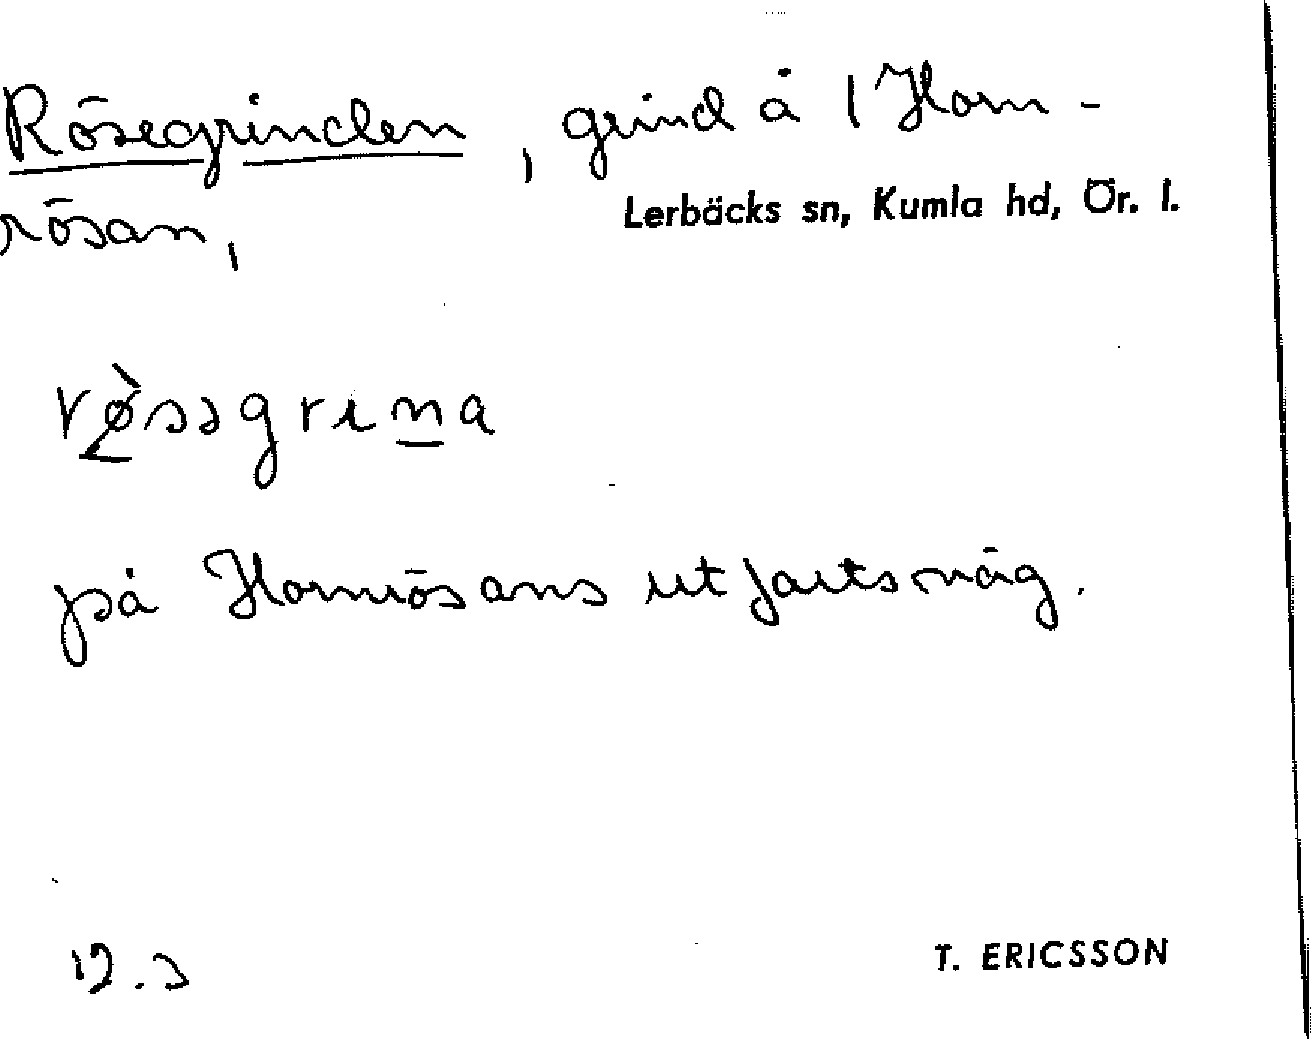 Rösegrinden, grind å 1 Horn-
Lerbäcks sn, Kumla hd, Ör. l.
rösan,
rø̀ssgrina
på Hornrösans utfartsväg.
T. ERICSSON